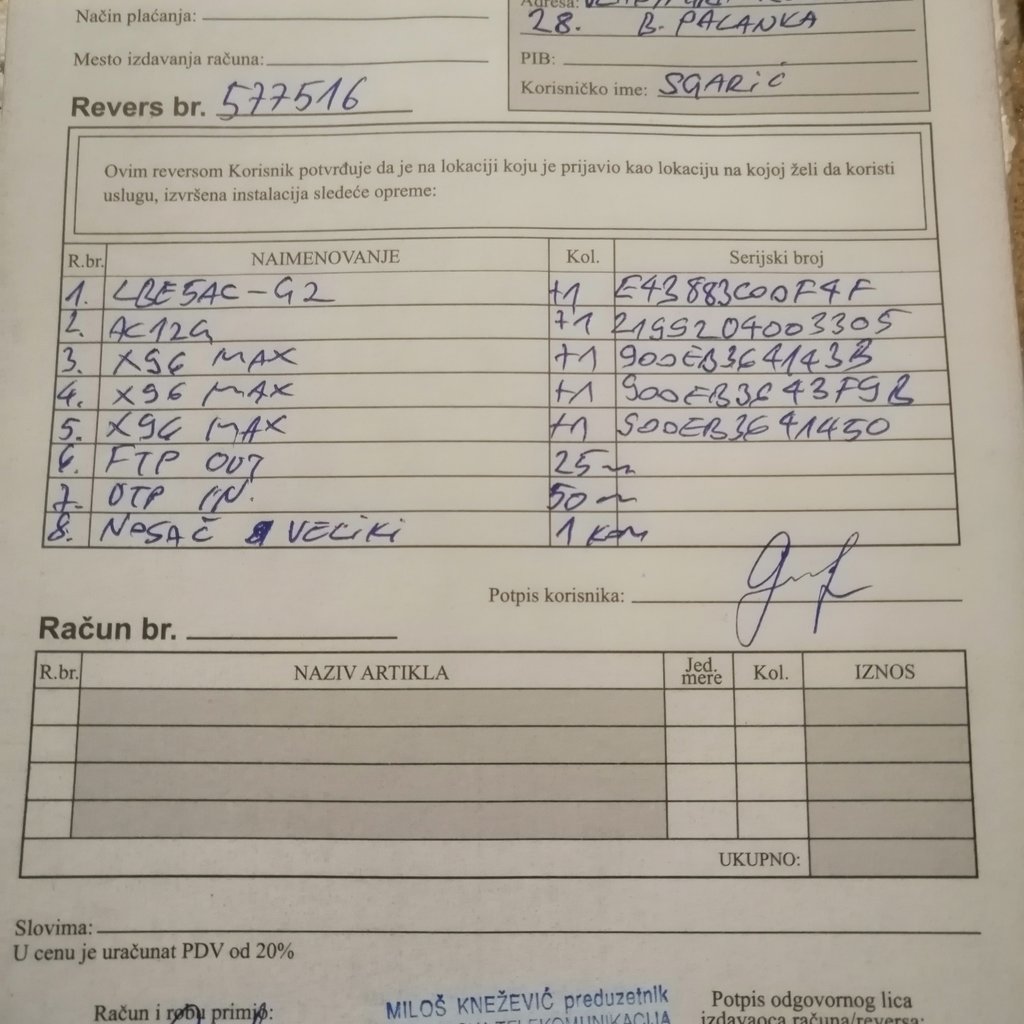 Način plaćanja:
Adresa:
28. B. PALANKA
Mesto izdavanja računa:
PIB:
Korisničko ime: SGARIĆ
Revers br. 577516
Ovim reversom Korisnik potvrđuje da je na lokaciji koju je prijavio kao lokaciju na kojoj želi da koristi
uslugu, izvršena instalacija sledeće opreme:
R.br. NAIMENOVANJE Kol. Serijski broj
1. LBE5AC-G2 +1 E43883C00F4F
2. AC12G +1 2199204003305
3. X96 MAX +1 900EB364143B
4. X96 MAX +1 900EB3643F9B
5. X96 MAX +1 900EB3641450
6. FTP OUT 25m
7. UTP IN. 50m
8. NOSAČ VELIKI 1 KOM
Potpis korisnika:
Račun br.
R.br. NAZIV ARTIKLA Jed. mere Kol. IZNOS
UKUPNO:
Slovima:
U cenu je uračunat PDV od 20%
Račun i robu primio:
MILOŠ KNEŽEVIĆ preduzetnik
Potpis odgovornog lica
TELEKOMUNIKACIJA
izdavaoca računa/reversa: